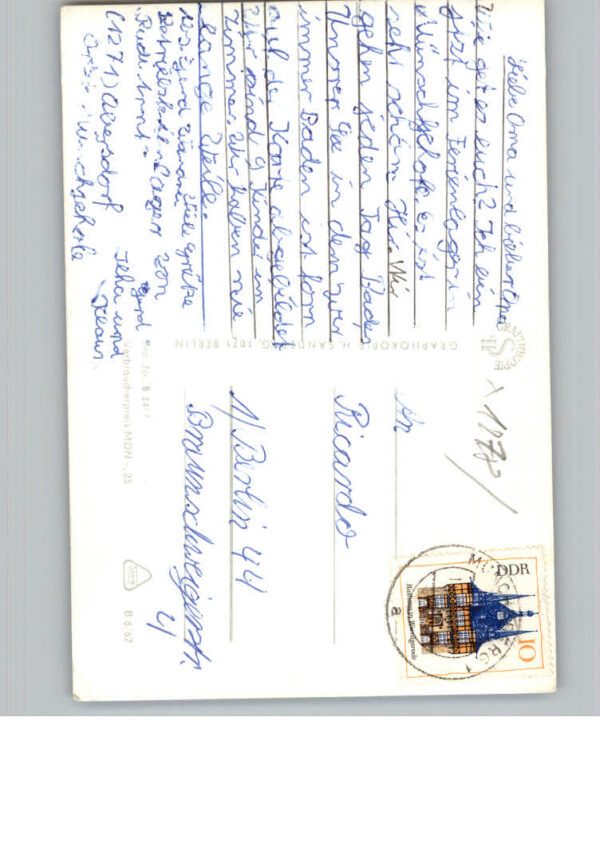 Liebe Oma und lieber Opa
Wie get es euch? Ich bin
jizt im Ferienlager in
Münschehofe es ist
sehr schön hir. Wir
gehen jeden Tag Baden
Unser See in dem wir
immer Baden ist forn
auf der Karte abgebildet
Wir sind 9 Kinder im
Zimmer. Wir haben nie
lange Weile.
Viele grüße
Betriebsferienlager von
"Rudi Arnt"
(1271)
Ilka und
Klaus
GRAPHOKOPIE H. SANDBERG, 1071 BERLIN
GRAPHOKOPIE
HS
Verbraucherpreis MDN -,25
B 8/67
x 1977
An
Ricardo
1/ Berlin 44
Braunschweigerstr.
4
DDR
Rathaus in Wernigerode
10
MÜNCHEBERG 1
a